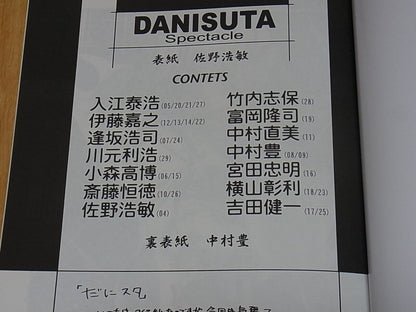 DANISUTA
Spectacle
表紙 佐野浩敏
CONTETS
入江泰浩(05/20/21/27)
伊藤嘉之(12/13/14/22)
逢坂浩司(07/24)
川元利浩(29)
小森高博(06/15)
斎藤恒徳(10/26)
佐野浩敏(04)
竹内志保(28)
富岡隆司(19)
中村直美(11)
中村豊(08/09)
宮田忠明(16)
横山彰利(18/23)
吉田健一(17/25)
裏表紙 中村豊
「だにスタ」